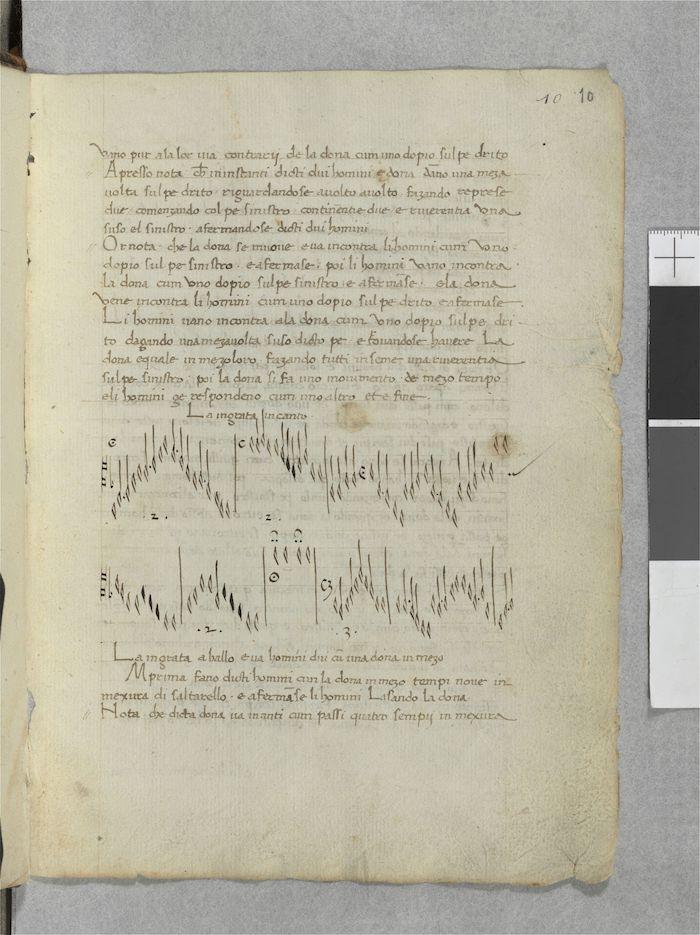 10 10
Vano pur ala lor uia contrarij de la dona cum uno dopio sul pe drito
Apresso nota ch̄ in instanti dicti dui homini e dona dāno una meza
uolta sul pe drito riguardandose auolto auolto fazando represe
due comenzando col pe sinistro continentie due e riuerentia Una
suso el sinistro afermandose dicti dui homini
Or nota che la dona se muoue e ua incontra li homini cum Vono
dopio sul pe sinistro e afermase poi li homini Vano incontra
la dona cum Vno dopio sul pe sinistro e afermāse ela dona
Vene incontra li homini cum uno dopio sul pe drito e afermase
Li homini uano incontra ala dona cum Vno dopio sul pe dri
to dagando una meza uolta suso dicto pe e trouandose hauere La
dona equale in mezo loro fazando tutti inseme una riuerentia
sul pe sinistro poi la dona si fa uno mouimento de mezo tempo
e li homini ge respondeno cum uno altro et e fine
La ingrata in canto
2. 2.
.2. .3.
La ingrata a ballo e ua homini dui cū una dona in mezo
M prima fano dicti homini cun la dona in mezo tempi noue in
mexura di saltarello e afermāse li homini Lasando la dona
Nota che dicta dona ua inanti cum passi quatro sempij in mexura